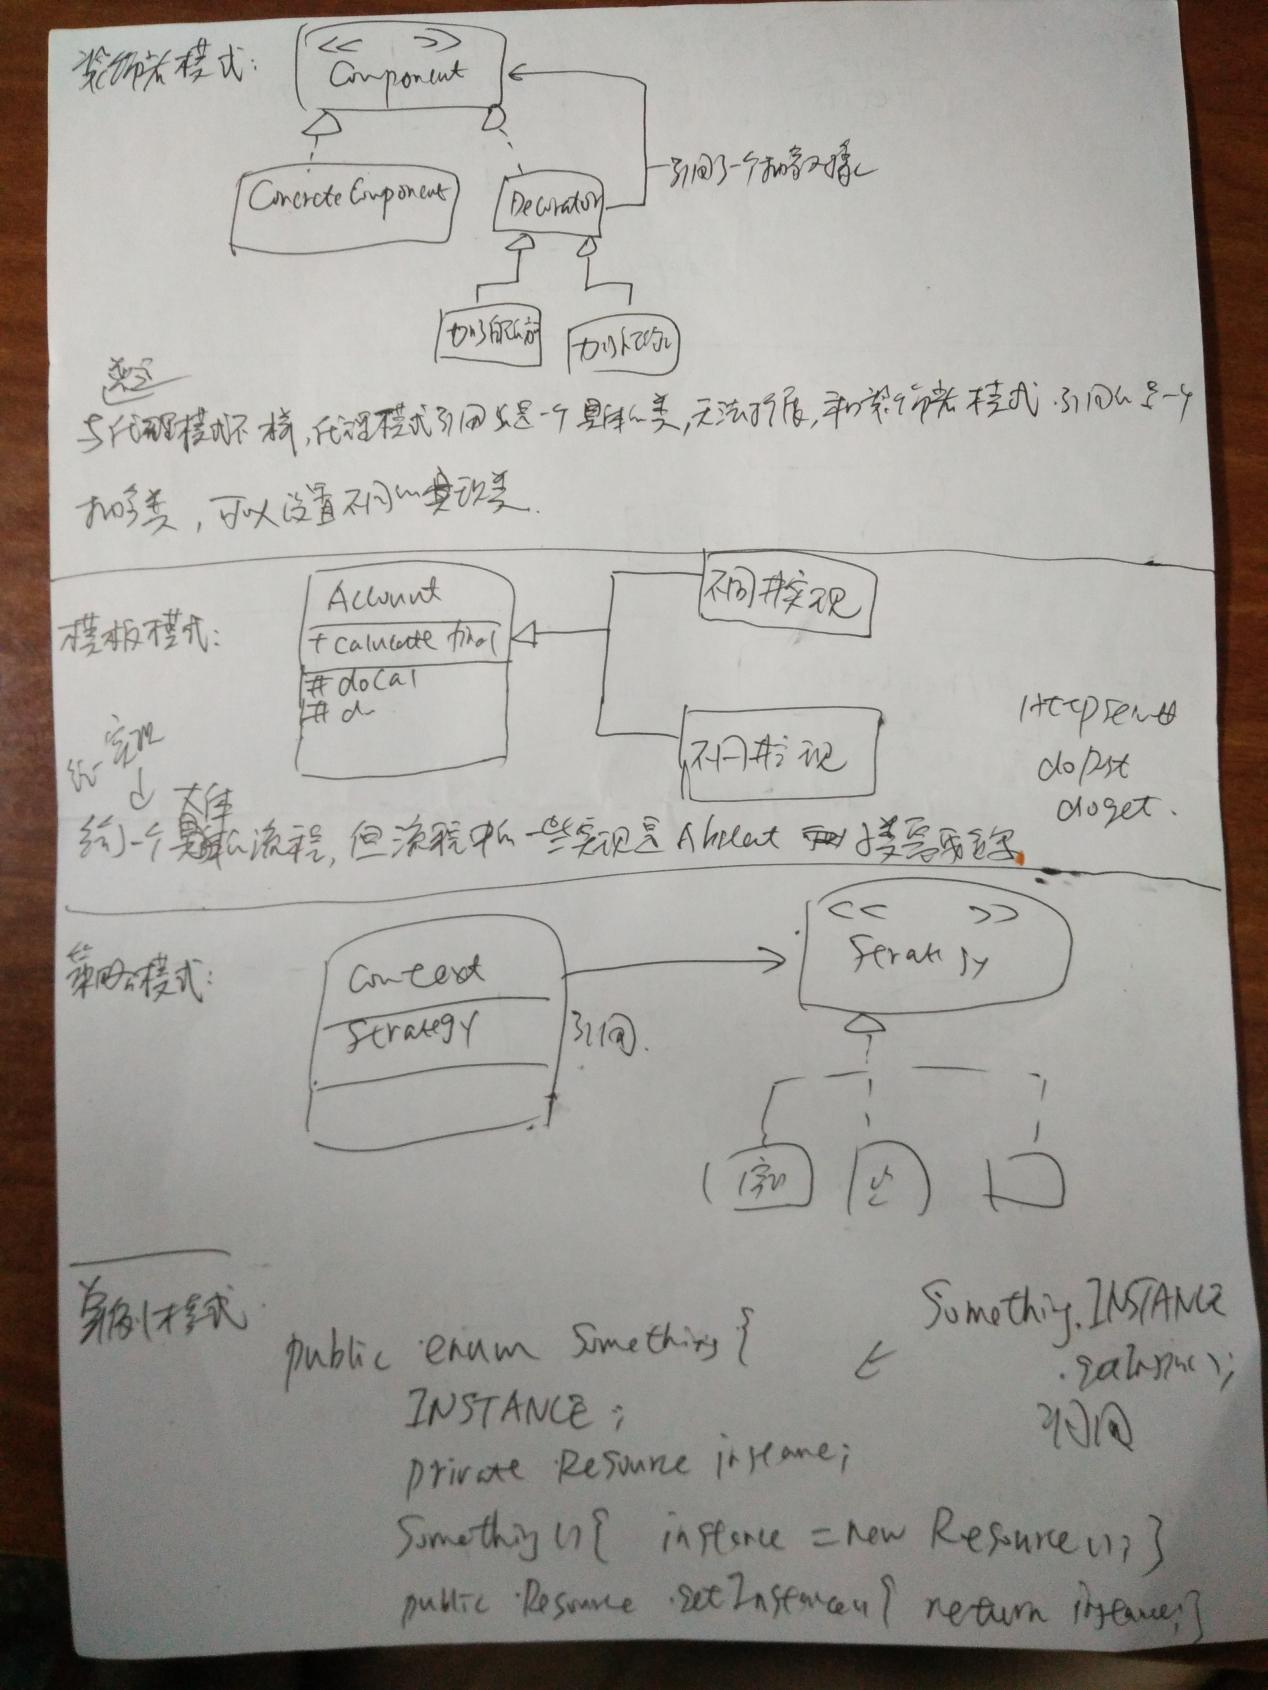 装饰者模式:
<< >>
Component
引用了一个抽象对象
ConcreteComponent
Decorator
与代理模式不一样,代理模式引用的是一个具体的类,无法扩展,和装饰者模式.引用的是一个
抽象类,可以设置不同的实现类.
模板模式:
Account
+calculate final
#doCal
#d
不同#实现
不同#实现
实现
大体
Httpservlet
dopost
doget.
给一个具体的流程,但流程中的一些实现是
策略模式:
<< >>
Strategy
Context
Strategy
引用.
单例模式
public enum Something {
INSTANCE;
private Resource instance;
Something(){ instance = new Resource(); }
public Resource getInstance(){ return instance;}
Something.INSTANCE
.getInstance();
引用